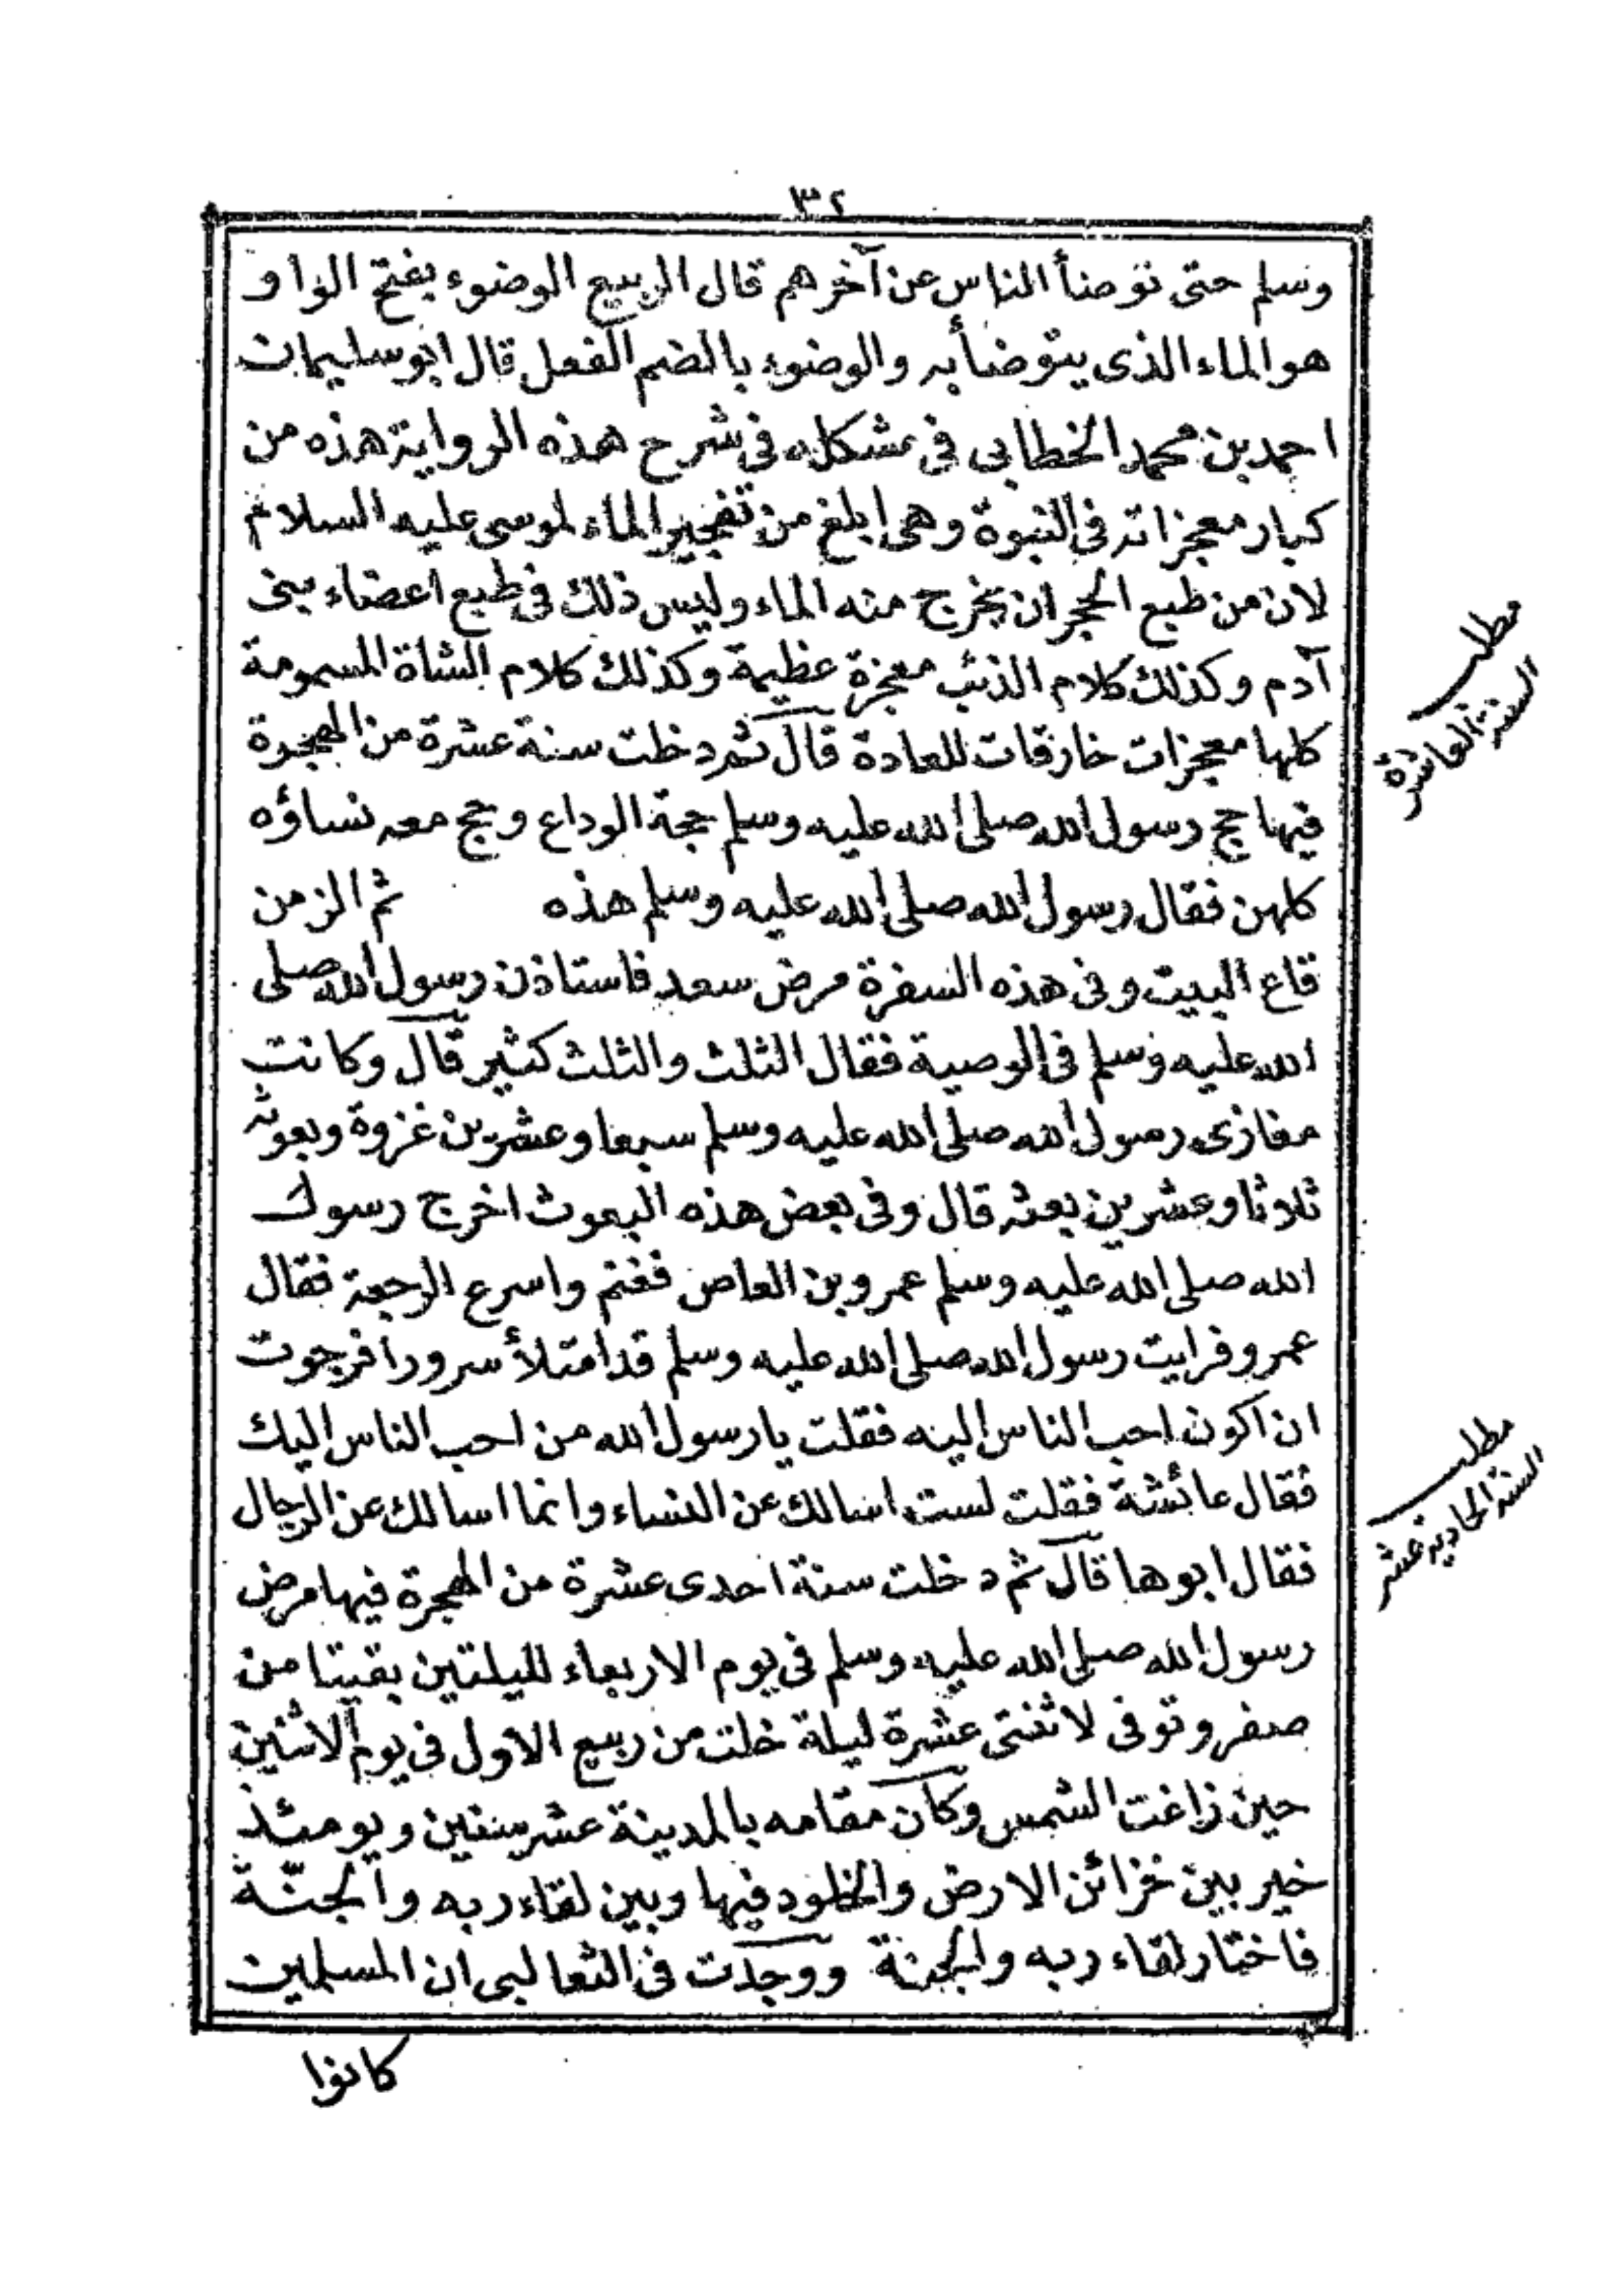 ٣٢
وسلم حتى توضأ الناس عن آخرهم قال الربيع الوضوء بفتح الواو
هو الماء الذى يتوضأ به والوضوء بالضم الفعل قال ابو سليمان
احمد بن محمد الخطابى فى مشكله فى شرح هذه الرواية هذه من
كبار معجزاته فى النبوة وهى ابلغ من تفجير الماء لموسى عليه السلام
لان من طبع الحجر ان يخرج منه الماء وليس ذلك فى طبع اعضاء بنى
آدم وكذلك كلام الذئب معجزة عظيمة وكذلك كلام الشاة المسمومة
كلها معجزات خارقات للعادة قال ثم دخلت سنة عشرة من الهجرة
فيها حج رسول الله صلى الله عليه وسلم حجة الوداع وحج معه نساؤه
كلهن فقال رسول الله صلى الله عليه وسلم هذه ثم الزمن
قاع البيت وفى هذه السفرة مرض سعد فاستاذن رسول الله صلى
الله عليه وسلم فى الوصية فقال الثلث والثلث كثير قال وكانت
مغازى رسول الله صلى الله عليه وسلم سبعا وعشرين غزوة وبعوثه
ثلاثا وعشرين بعثه قال وفى بعض هذه البعوث اخرج رسول
الله صلى الله عليه وسلم عمرو بن العاص فغنم واسرع الرجعة فقال
عمرو فرايت رسول الله صلى الله عليه وسلم قد امتلأ سرورا فرجوت
ان اكون احب الناس اليه فقلت يا رسول الله من احب الناس اليك
فقال عائشة فقلت لست اسالك عن النساء وانما اسالك عن الرجال
فقال ابوها قال ثم دخلت سنة احدى عشرة من الهجرة فيها مرض
رسول الله صلى الله عليه وسلم فى يوم الاربعاء لليلتين بقيتا من
صفر وتوفى لاثنتى عشرة ليلة خلت من ربيع الاول فى يوم الاثنين
حين زاغت الشمس وكان مقامه بالمدينة عشر سنين ويومئذ
خير بين خزائن الارض والخلود فيها وبين لقاء ربه والجنّة
فاختار لقاء ربه والجنة ووجدت فى الثعالبى ان المسلمين
كانوا
مطلب
السنة العاشرة
مطلب
السنة الحادية عشر